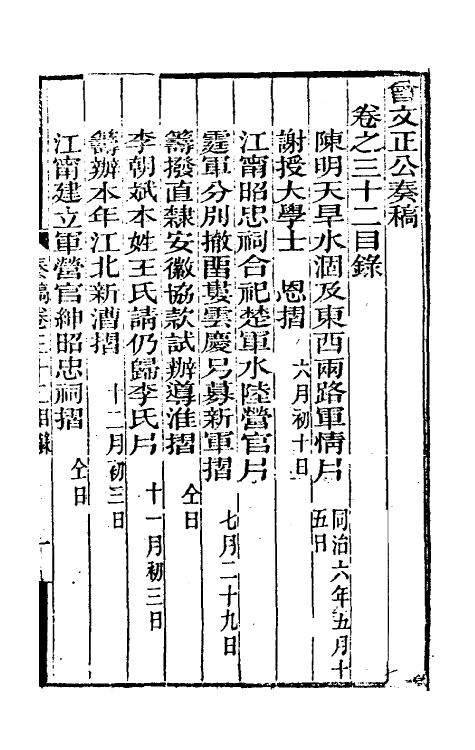 曾文正公奏稿
卷之三十二目錄
陳明天旱水涸及東西兩路軍情片 同治六年五月十五日
謝授大學士 恩摺 六月初十日
江甯昭忠祠合祀楚軍水陸營官片
霆軍分別撤留婁雲慶另募新軍摺 七月二十九日
籌撥直隸安徽協款試辦導淮摺 仝日
李朝斌本姓王氏請仍歸李氏片 十一月初三日
籌辦本年江北新漕摺 十二月初三日
江甯建立軍營官紳昭忠祠摺 仝日
奏稿卷三十二目錄 一